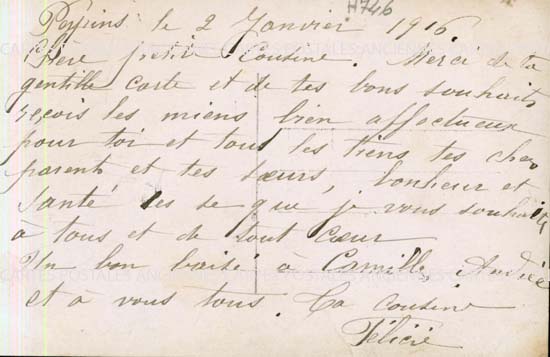 H746
le 2 Janvier 1916
Chère petite Cousine. Merci de ta
gentille carte et de tes bons souhaits
reçois les miens bien affectueux
pour toi et tous les tiens tes chers
parents et tes sœurs, bonheur et
santé es se que je vous souhaite
à tous et de tout cœur
Un bon baisé à Camille, Andrée
et à vous tous. Ta cousine
Félicie
CARTES POSTALES ANCIENNES